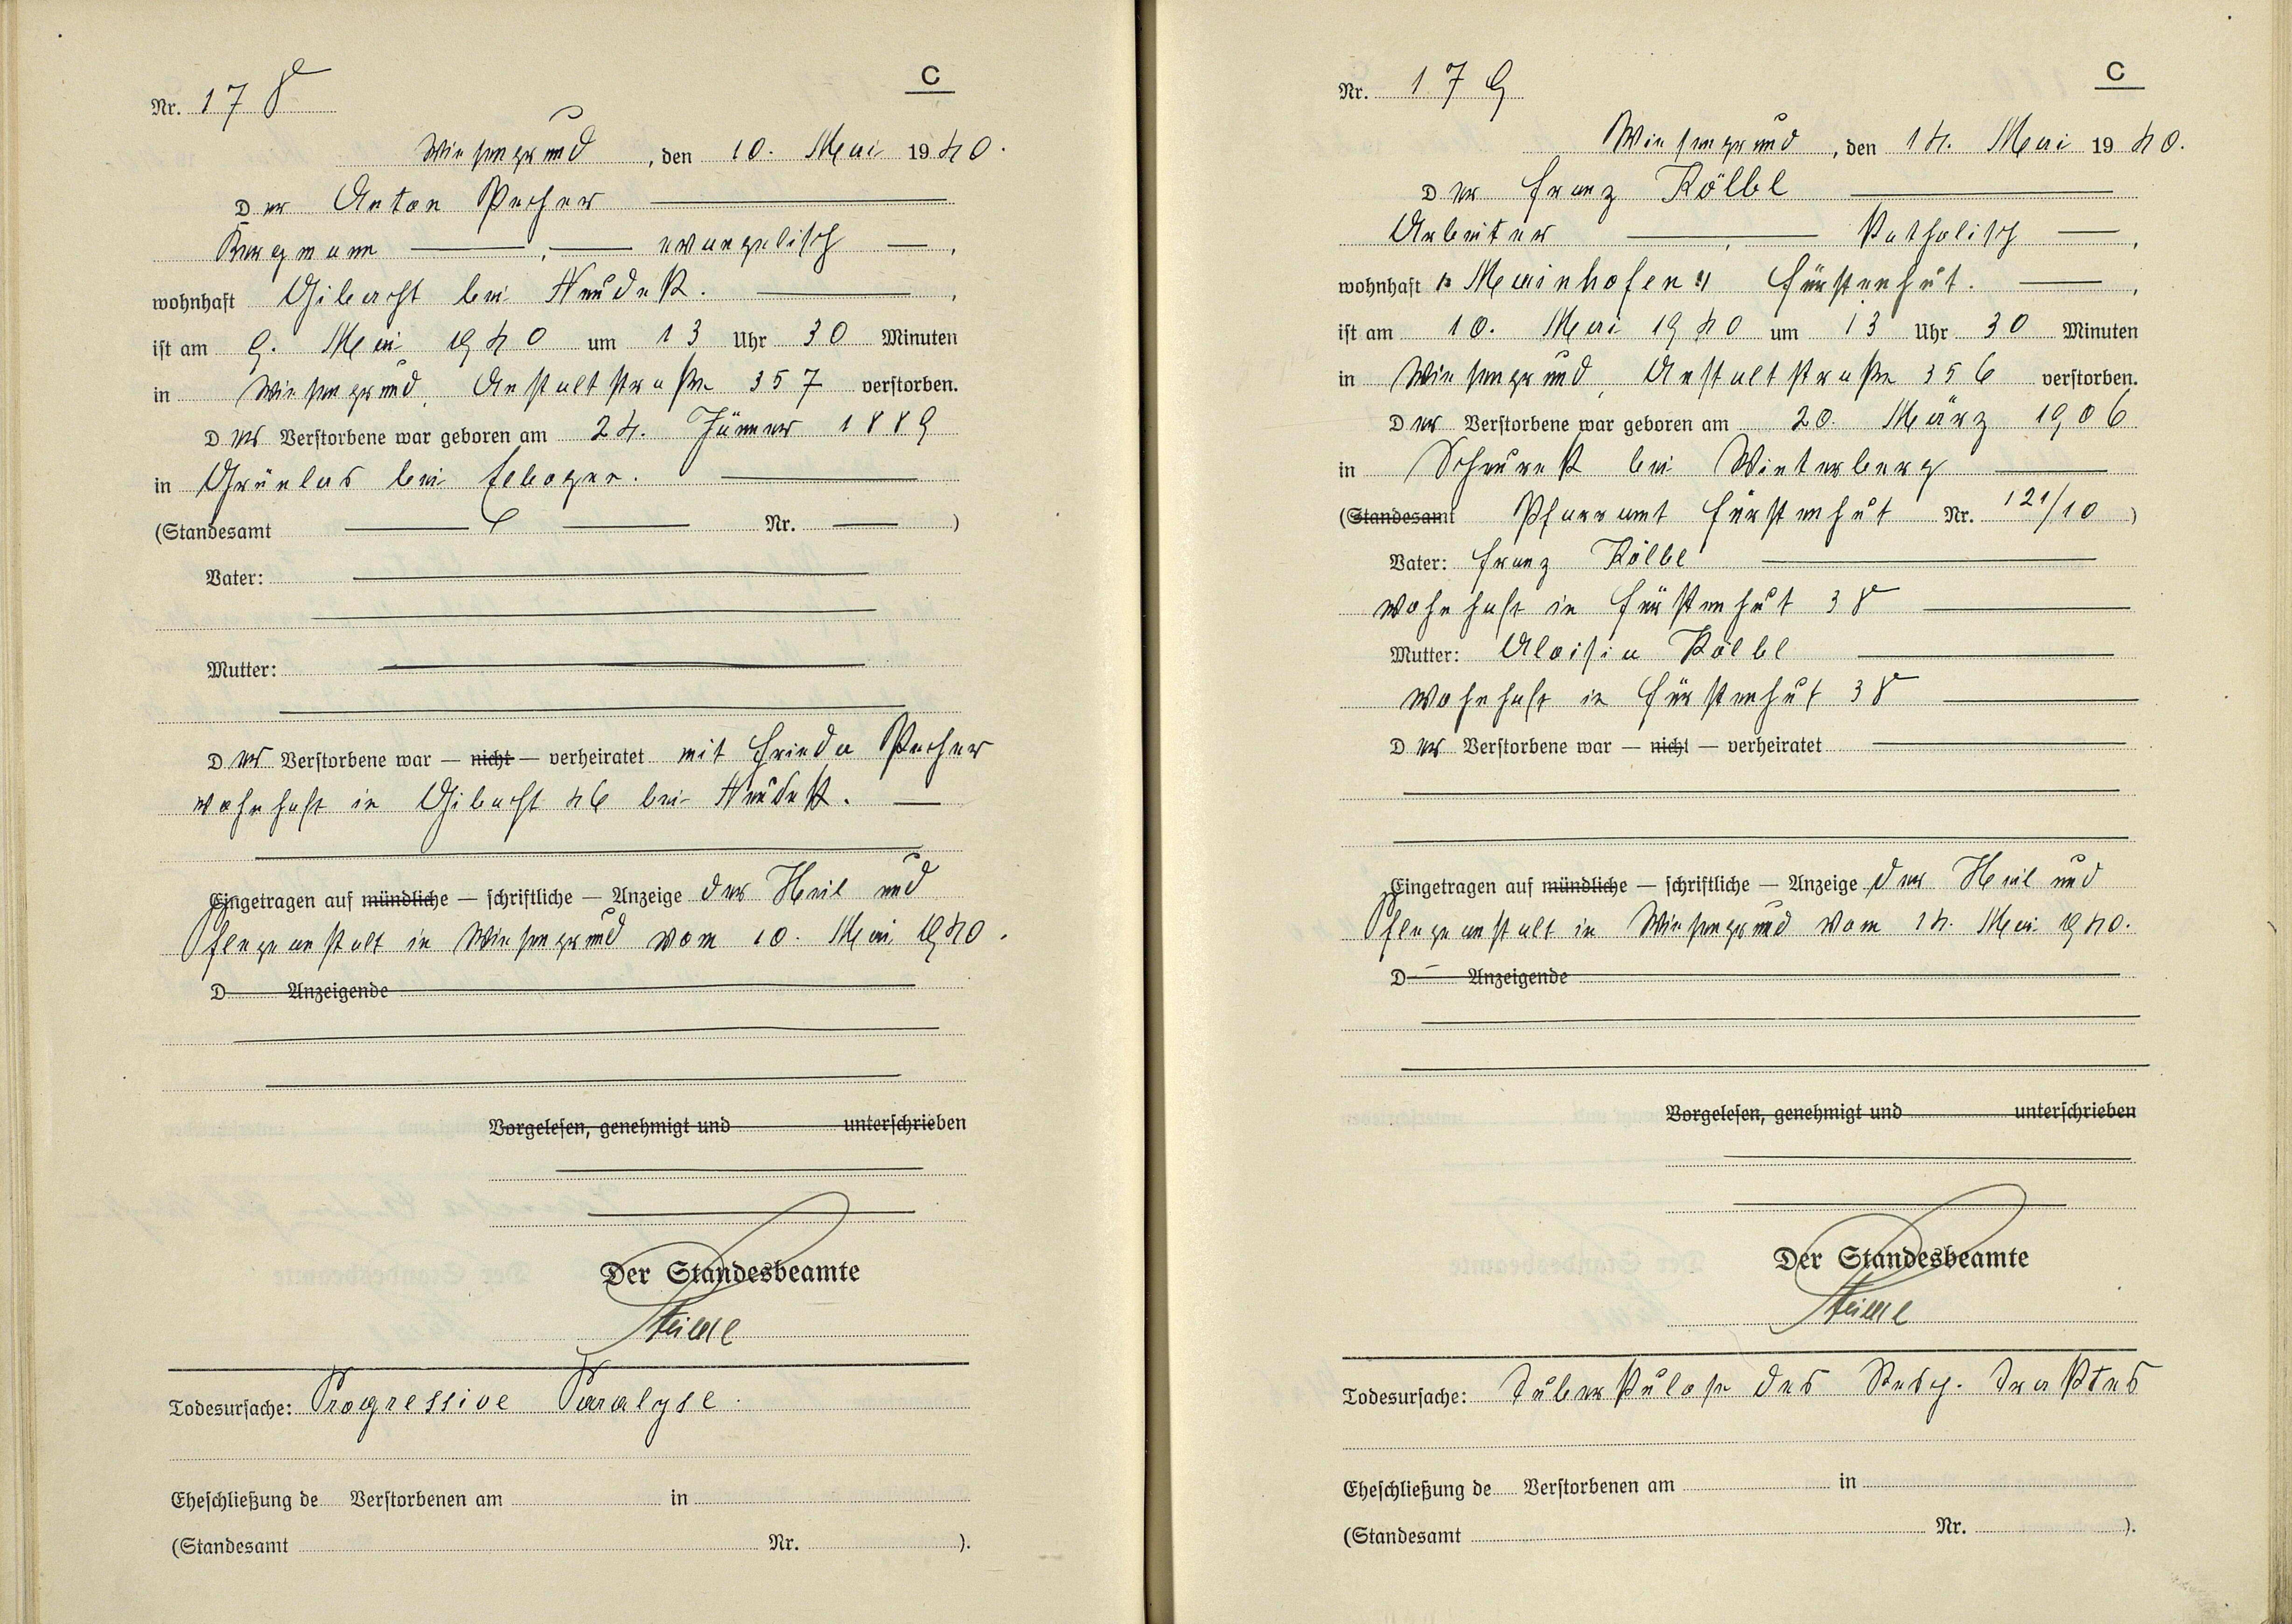 C
Nr. 178
Wiesengrund, den 10. Mai 1940.
Der Anton Pecher
Bergmann, evangelisch,
wohnhaft Gibacht bei Neudek.,
ist am 9. Mai 1940 um 13 Uhr 30 Minuten
in Wiesengrund, Anstaltstraße 357 verstorben.
Der Verstorbene war geboren am 24. Jänner 1889
in Grünlas bei Elbogen.
(Standesamt Nr. )
Vater:
Mutter:
Der Verstorbene war — nicht — verheiratet mit Frieda Pecher
wohnhaft in Gibacht 46 bei Neudek.
Eingetragen auf mündliche — schriftliche — Anzeige der Heil und
Pflegeanstalt in Wiesengrund vom 10. Mai 1940.
D Anzeigende
Vorgelesen, genehmigt und unterschrieben
Der Standesbeamte
Todesursache: Progressive Paralyse.
Eheschließung de Verstorbenen am in
(Standesamt Nr. ).
C
Nr. 179
Wiesengrund, den 14. Mai 1940.
Der Franz Kölbl
Arbeiter, katholisch,
wohnhaft "Mainhofen" Fürstenhut.,
ist am 10. Mai 1940 um 13 Uhr 30 Minuten
in Wiesengrund, Anstaltstraße 356 verstorben.
Der Verstorbene war geboren am 20. März 1906
in Scheurek bei Winterberg
(Standesamt Pfarramt Fürstenhut Nr. 121/10 )
Vater: Franz Kölbl
wohnhaft in Fürstenhut 38
Mutter: Aloisia Kölbl
wohnhaft in Fürstenhut 38
Der Verstorbene war — nicht — verheiratet
Eingetragen auf mündliche — schriftliche — Anzeige der Heil und
Pflegeanstalt in Wiesengrund vom 14. Mai 1940.
D Anzeigende
Vorgelesen, genehmigt und unterschrieben
Der Standesbeamte
Todesursache: Tuberkulose des Resp. Traktes
Eheschließung de Verstorbenen am in
(Standesamt Nr. ).